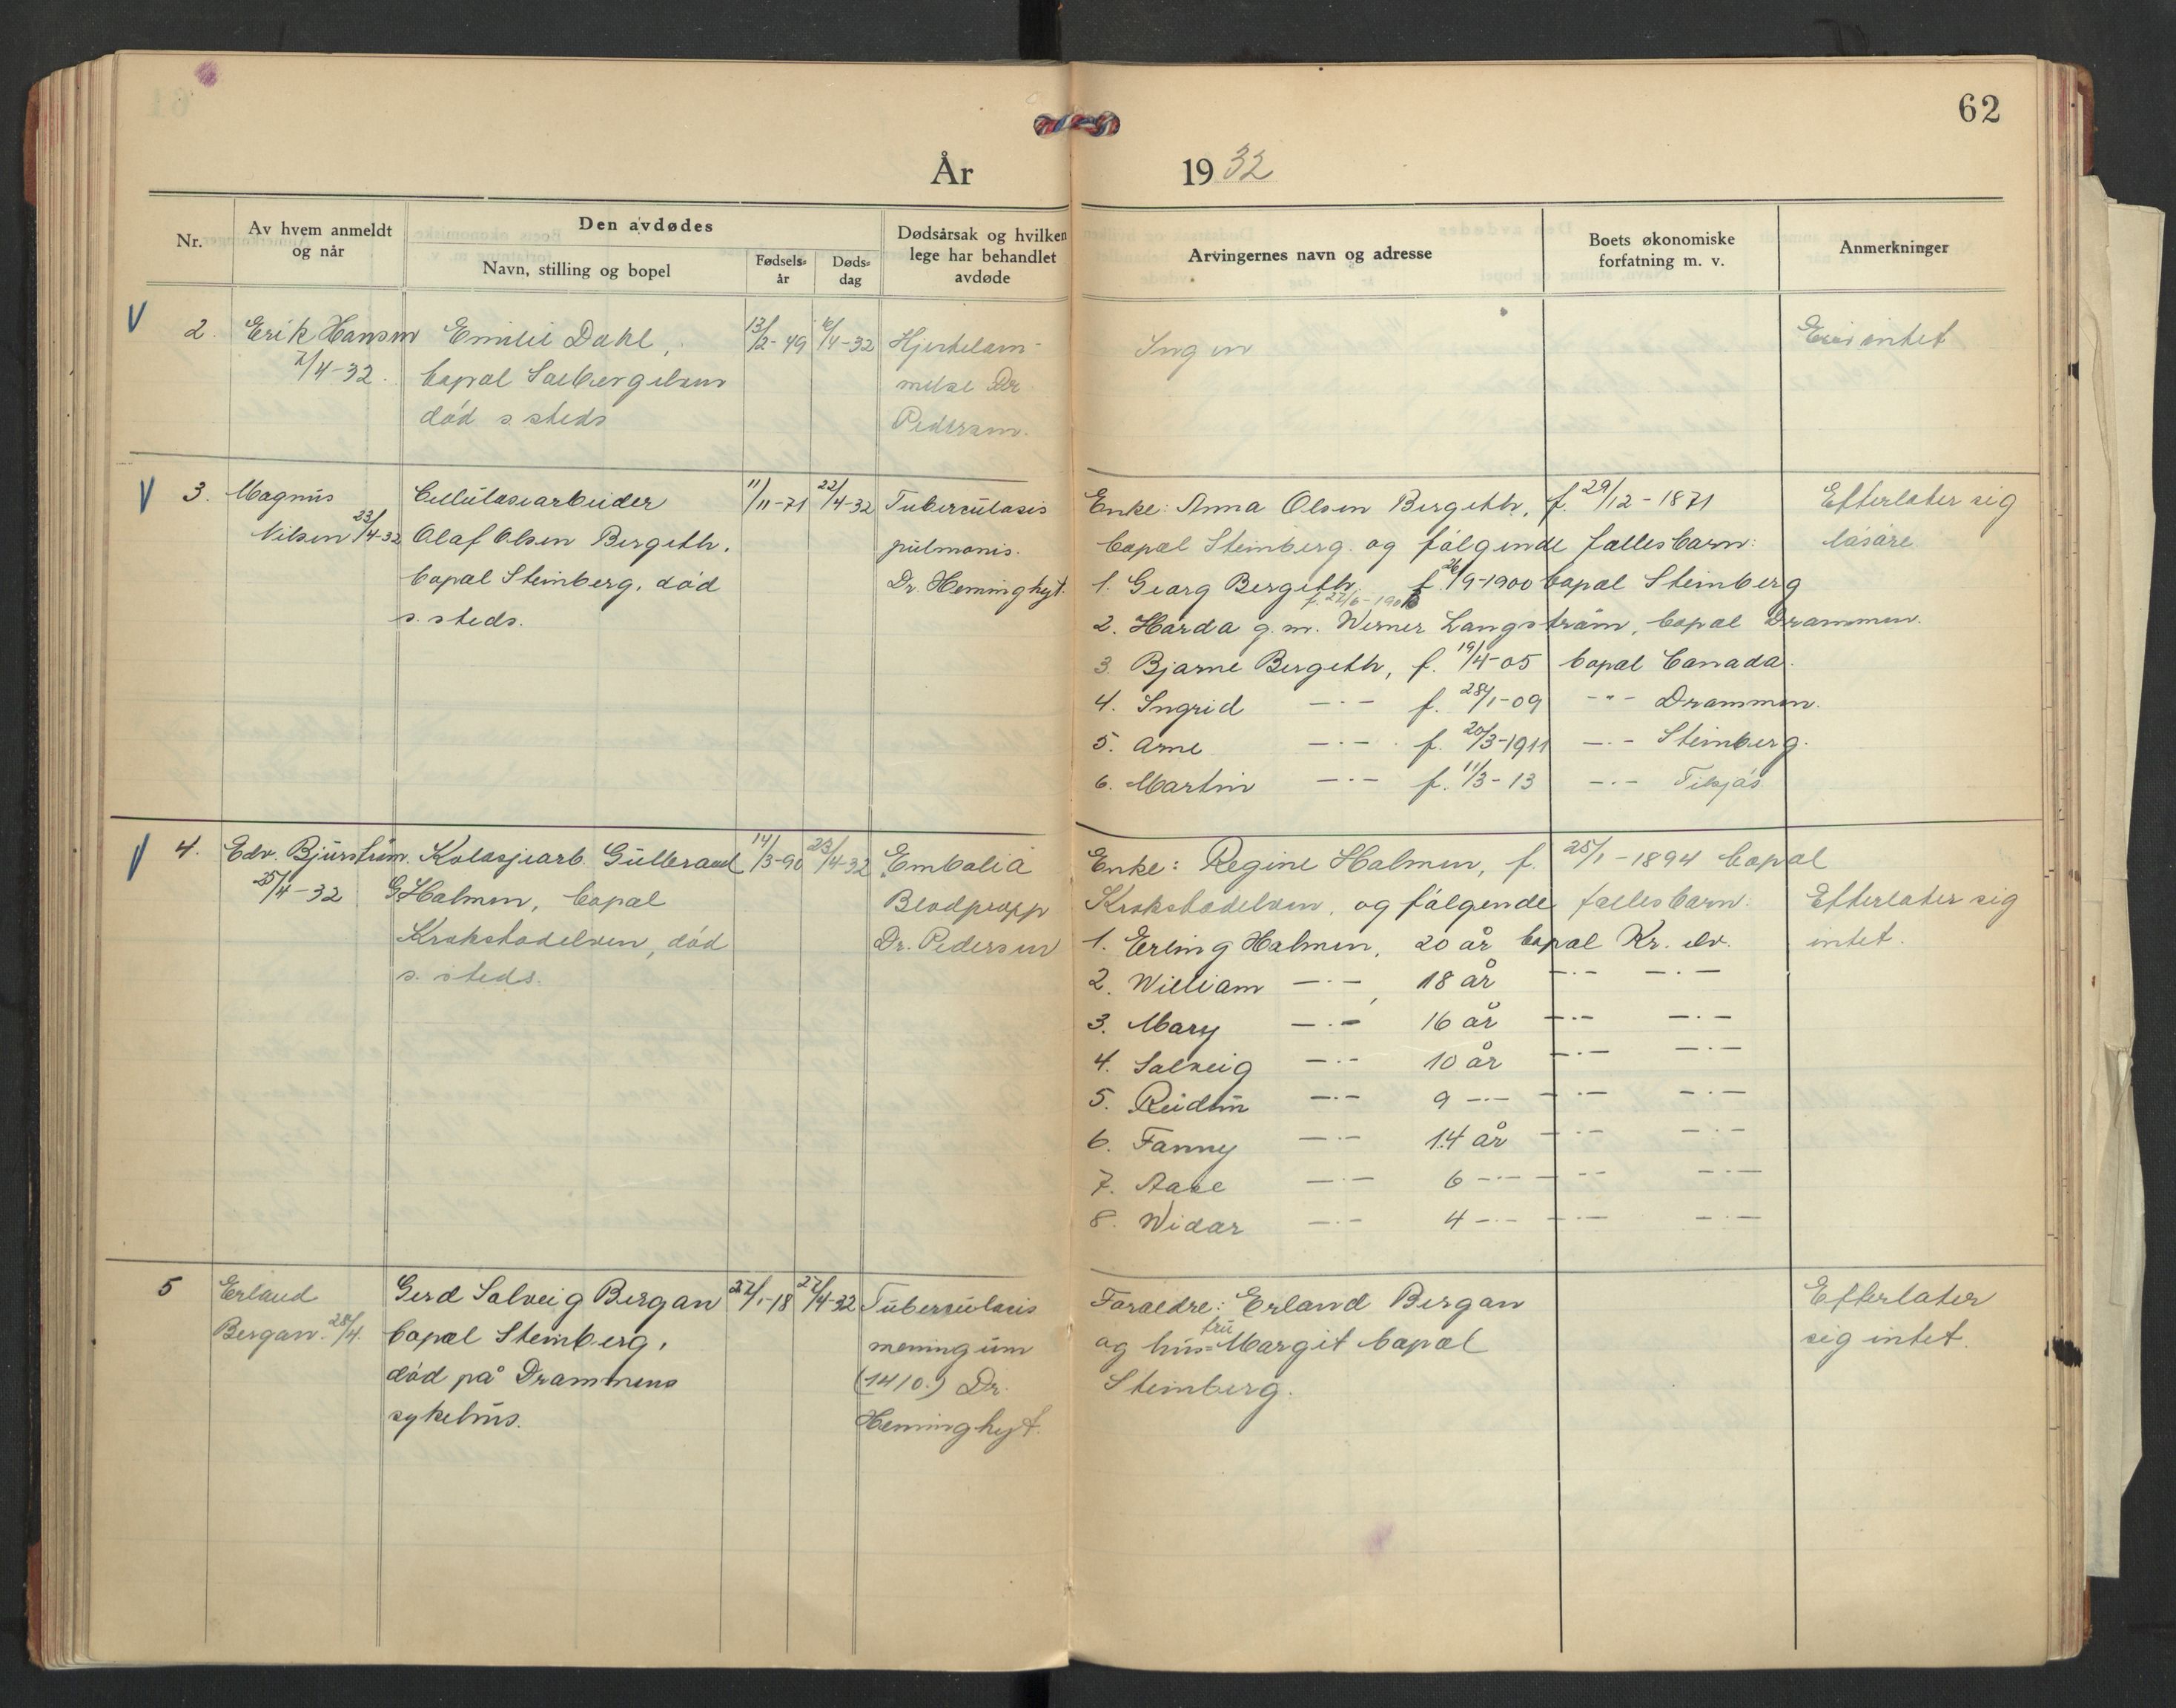 62
År 1932
Nr.
Av hvem anmeldt
og når
Den avdødes
Navn, stilling og bopel
Fødsels-
år
Døds-
dag
Dødsårsak og hvilken
lege har behandlet
avdøde
Arvingernes navn og adresse
Boets økonomiske
forfatning m. v.
Anmerkninger
2. Erik Hansen Emilie Dahl, 13/2-49 6/4-32 Hjertelam-
Ingen
Eier intet
7/4-32. bopæl Solbergelven melse Dr
død s. steds Pedersen.
3. Magnus Cellulosearbeider 11/11-71 22/4-32 Tuberculosis
Nilsen 23/4-32 Olaf Olsen Bergeth, pulmonis.
bopæl Steinberg, død Dr. Heminghyt.
s. steds.
Enke: Anna Olsen Bergeth, f. 29/12-1871 Efterlater sig
bopæl Steinberg og følgende fællesbarn: løsøre
1. Georg Bergeth f. 26/9-1900 bopæl Steinberg
2. Harda g.m. Werner Langstrøm, bopæl Drammen.
3. Bjarne Bergeth, f. 19/4-05 bopæl Canada.
4. Ingrid —·— f. 28/1-09 —"— Drammen.
5. Arne —·— f. 20/3-1911 —·— Steinberg.
6. Martin —·— f. 11/3-13 —·—
4. Edv. Bjurstrøm. Kolosjearb. Gulbrand 14/3-90 23/4-32 Embolia
25/4-32 G. Holmen, bopæl Blodpropp
Krokstadelven, død Dr. Pedersen
s. steds.
Enke: Regine Holmen, f. 25/1-1894 bopæl
Krokstadelven, og følgende fællesbarn: Efterlater sig
1. Erling Holmen, 20 år bopæl Kr. elv. intet.
2. William —·—, 18 år —·— —·—
3. Mary —·— 16 år —·— —·—
4. Solveig —·— 10 år —·— —·—
5. Reidun —·— 9 —·— —·— —·—
6. Fanny —·— 14 år —·— —·—
7. Aase —·— 6 —·— —·— —·—
8. Widar —·— 4 —·— —·— —·—
5 Erland Gerd Solveig Bergan 22/1-18 27/4-32 Tuberculosis
Bergan. 28/4. bopæl Steinberg, meningum
død på Drammens (1410.) Dr.
sykehus. Heminghyt.
Foreldre: Erland Bergan Efterlater
og hus-fru Margit bopæl sig intet.
Steinberg.